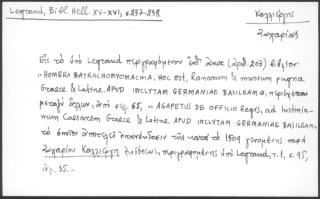 Legrand, Bibl. Hell. XV-XVI, σ. 237-238.
Καλλιέργης
Ζαχαρίας
Εἰς τὸ ὑπὸ Legrand περιγραφόμενον ὑπ' (ἀριθ. 203) βιβλίον:
"HOMERI BATRACHOMYOMACHIA, HOC EST, Ranarum & murium pugna,
Graece & Latine. APUD INCLYTAM GERMANIAE BASILEAM", περιέχεται
μεταξὺ ἄλλων, ἀπὸ σελ. 65, "AGAPETUS DE OFFICIO REGIS, ad Iustinia-
num Caesarem Graece & Latine. APUD INCLYTAM GERMANIAE BASILEAM",
τὸ ὁποῖον ἀποτελεῖ ἐπανέκδοσιν τῆς κατὰ τὸ 1509 γενομένης παρὰ
Ζαχαρίου Καλλιέργη ἐκδόσεως, περιγραφομένης ὑπὸ Legrand, τ. 1, σ. 95,
ἀρ. 35.-